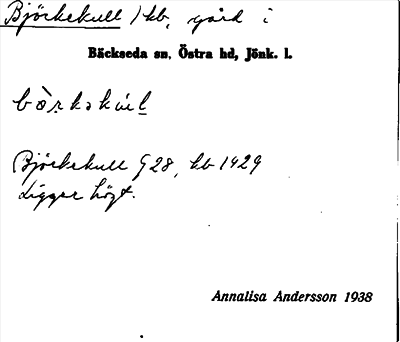 Björkekull 1 kb, gård i
Bäckseda sn, Östra hd, Jönk. l.
Björkekull G28, kb 1429
Ligger högt.
Annalisa Andersson 1938